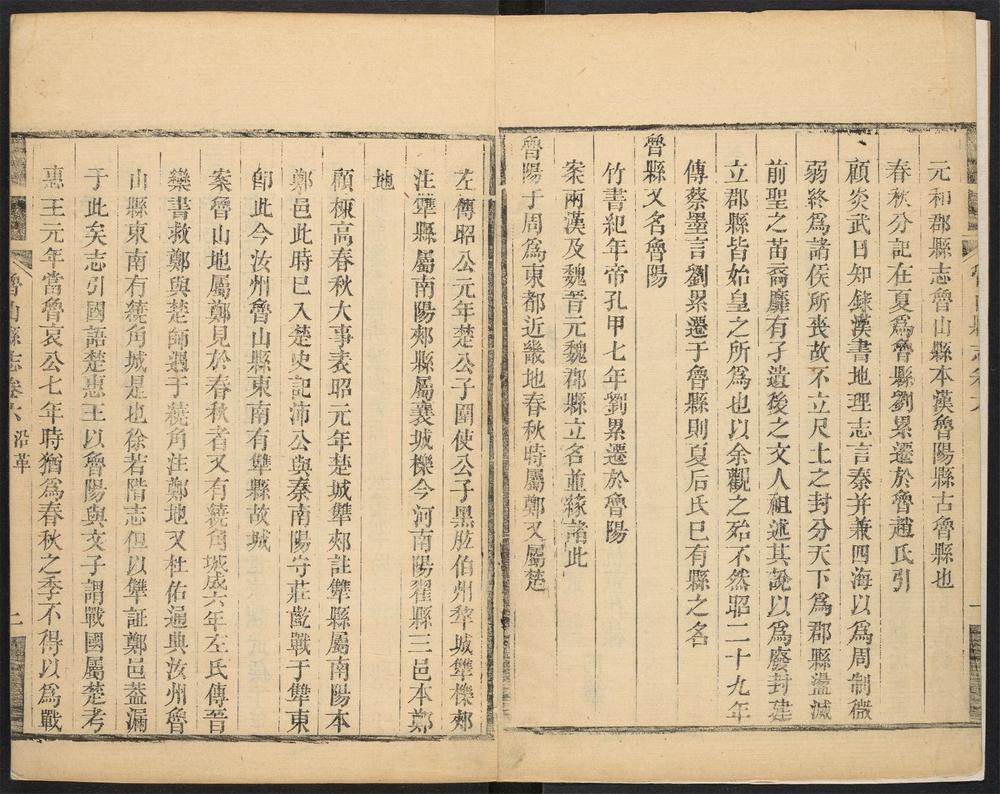 元和郡縣志魯山縣本漢魯陽縣古魯縣也
春秋分記在夏爲魯縣劉累遷於魯趙氏引
顧炎武日知錄漢書地理志言秦并兼四海以爲周制微
弱終爲諸侯所喪故不立尺土之封分天下爲郡縣盪滅
前聖之苗裔靡有孑遺後之文人祖述其說以爲廢封建
立郡縣皆始皇之所爲也以余觀之殆不然昭二十九年
傳蔡墨言劉累遷于魯縣則夏后氏已有縣之名
魯縣又名魯陽
竹書紀年帝孔甲七年劉累遷於魯陽
案兩漢及魏晉元魏郡縣立名並緣諸此
魯陽于周爲東都近畿地春秋時屬鄭又屬楚
左傳昭公元年楚公子圍使公子黑肱伯州犂城犨櫟郟
注犨縣屬南陽郟縣屬襄城櫟今河南陽翟縣三邑本鄭
地
顧棟高春秋大事表昭元年楚城犨郟註犨縣屬南陽本
鄭邑此時已入楚史記沛公與秦南陽守莊齮戰于犨東
卽此今汝州魯山縣東南有犨縣故城
案魯山地屬鄭見於春秋者又有繞角城成六年左氏傳晉
欒書救鄭與楚師遇于繞角注鄭地又杜佑通典汝州魯
山縣東南有繞角城是也徐若階志但以犨証鄭邑葢漏
于此矣志引國語楚惠王以魯陽與文子謂戰國屬楚考
惠王元年當魯哀公七年時猶爲春秋之季不得以爲戰
魯山縣志卷六 沿革 二